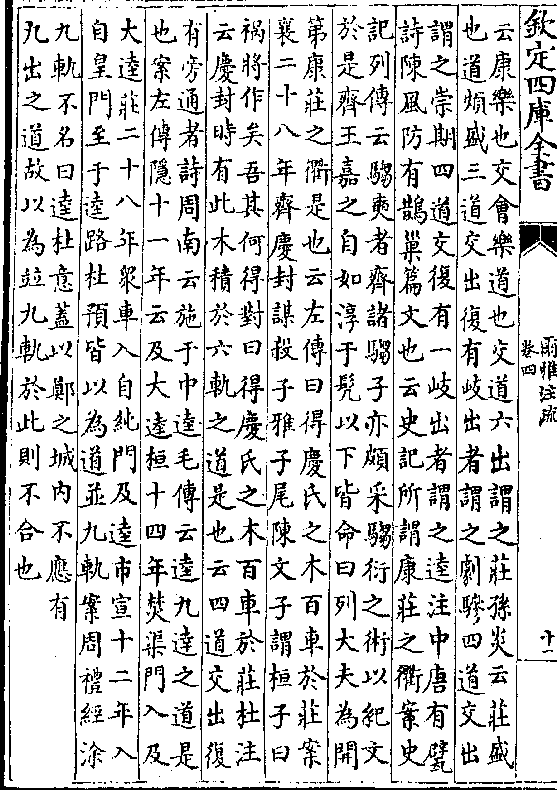 欽定四庫全書
爾雅注疏
卷四
十二
云康樂也交會樂道也交道六出謂之莊孫炎云莊盛
也道煩盛三道交出復有岐出者謂之劇驂四道交出
謂之崇期四道交復有一岐出者謂之逵注中唐有甓
詩陳風防有鵲巢篇文也云史記所謂康莊之衢案史
記列傳云騶奭者齊諸騶子亦頗采騶衍之術以紀文
於是齊王嘉之自如淳于髠以下皆命曰列大夫為開
第康莊之衢是也云左傳曰得慶氏之木百車於莊案
襄二十八年齊慶封謀殺子雅子尾陳文子謂桓子曰
禍將作矣吾其何得對曰得慶氏之木百車於莊杜注
云慶封時有此木積於六軌之道是也云四道交出復
有旁通者詩周南云施于中逵毛傳云逵九達之道是
也案左傳隱十一年云及大逵桓十四年焚渠門入及
大逵莊二十八年眾車入自純門及逵市宣十二年入
自皇門至于逵路杜預皆以為道並九軌案周禮經涂
九軌不名曰逵杜意蓋以鄭之城内不應有
九出之道故以為竝九軌於此則不合也